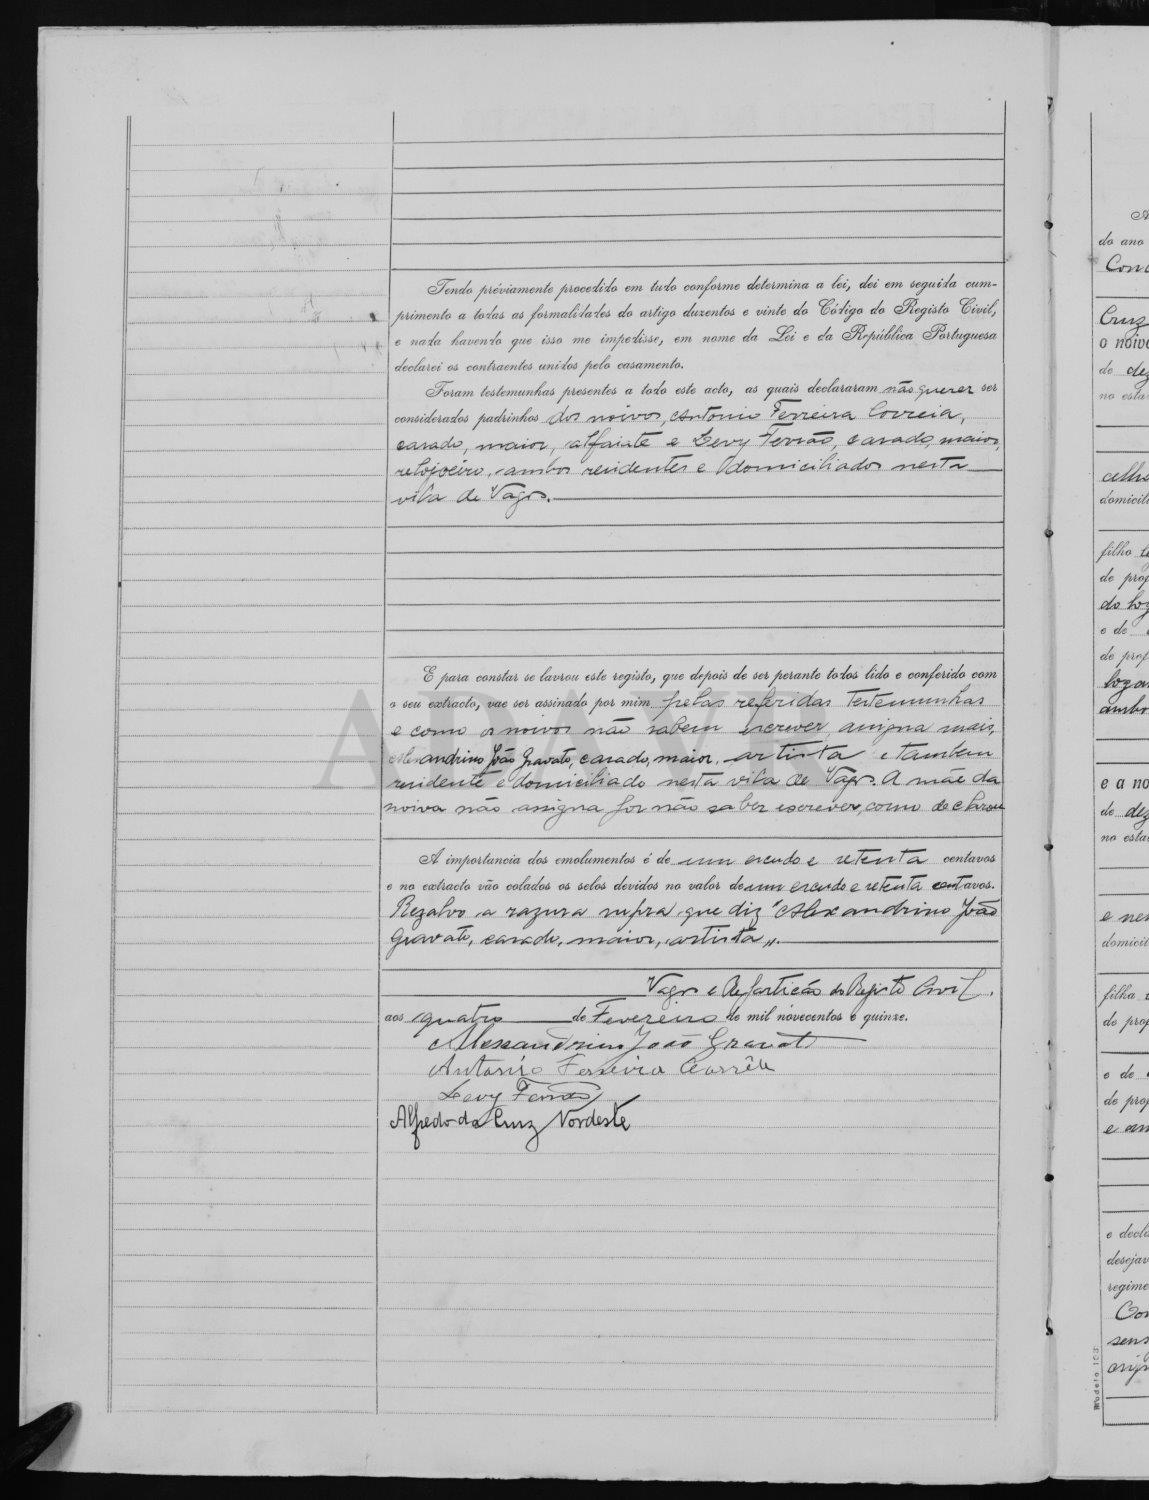 Tendo préviamente procedido em tudo conforme determina a lei, dei em seguida cum-
primento a todas as formalidades do artigo duzentos e vinte do Código do Registo Civil,
e nada havendo que isso me impedisse, em nome da Lei e da República Portuguesa
declarei os contraentes unidos pelo casamento.
Foram testemunhas presentes a todo este acto, as quais declararam não querer ser
considerados padrinhos dos noivos, Antonio Ferreira Correia,
casado, maior, alfaiate e Levy Ferrão, casado, maior,
relojoeiro, ambos residentes e domiciliados nesta
vila de Vagos.
E para constar se lavrou este registo, que depois de ser perante todos lido e conferido com
o seu extracto, vae ser assinado por mim pelas referidas testemunhas
e como os noivos não sabem escrever, assigna mais,
Alexandrino João Gravato, casado, maior, artista e tambem
residente e domiciliado nesta vila de Vagos. A mãe da
noiva não assigna por não saber escrever, como declarou
A importancia dos emolumentos é de um escudo e setenta centavos
e no extracto vão colados os selos devidos no valor de um escudo e setenta centavos.
Rezalvo a razura supra que diz "Alexandrino João
Gravato, casado, maior, artista".
Vagos e Repartição do Registo Civil,
aos quatro de Fevereiro de mil novecentos e quinze.
Alexandrino João Gravato
Antonio Ferreira Corrêa
Levy Ferrão
Alfredo da Cruz Nordeste
A
do ano
Conc
Cruz
o noivo
de dez
no esta
celho
domicili
filho
de prop
do log
e de
de prof
logar
ambo
e a no
de dez
no estad
e nen
domicil
filha
de prop
e de
de prop
e am
e decla
desejav
regime
Con
sens
orig
Modelo 103
ADAVR